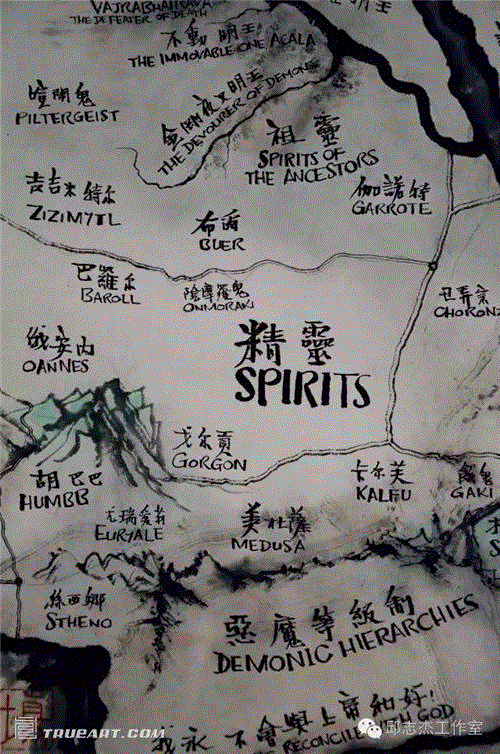 VAJRABHAIRAVA
THE DEFEATER OF DEATH
明王
不動明王
THE IMMOVABLE ONE ACALA
金剛夜叉明王
THE DEVOURER OF DEMONS
喧鬧鬼
PILTERGEIST
祖靈
SPIRITS OF
THE ANCESTORS
吉吉米特尔
ZIZIMYTL
伽諾特
GARROTE
布甭
BUER
巴羅尔
BAROLL
陰摩羅鬼
ONMORAKI
丑弄宗
CHORONZ
俄安内
OANNES
精靈
SPIRITS
戈尔貢
GORGON
胡巴巴
HUMBB
卡尔芙
KALFU
餓鬼
GAKI
尤瑞爱莉
EURYALE
美杜薩
MEDUSA
絲西娜
STHENO
惡魔等級制
DEMONIC HIERARCHIES
我永不會與上帝和好!
RECONCILE
GOD
TRUEART.COM
邱志杰工作室